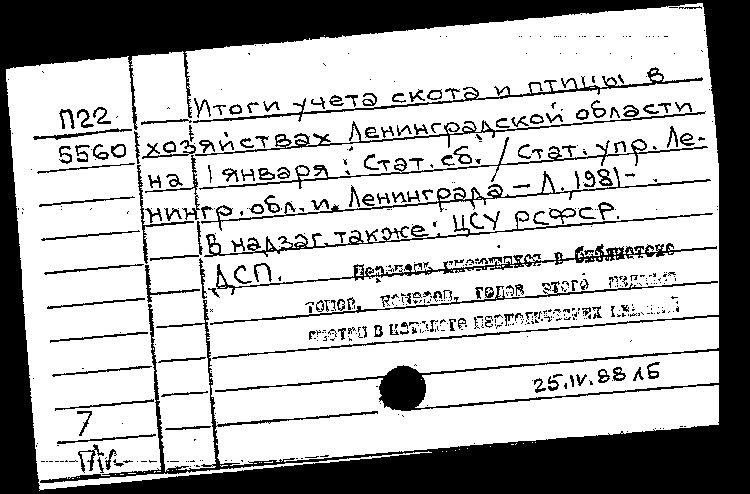 П22
5560
Итоги учета скота и птицы в
хозяйствах Ленинградской области
на 1 января : Стат. сб. / Стат. упр. Ле-
нингр. обл. и. Ленинграда. – Л., 1981– .
В надзаг. также: ЦСУ РСФСР.
ДСП.
Перечень имеющихся в библиотеке
томов, номеров, годов этого издания
смотри в каталоге периодических изданий
25.IV.88 ЛБ
7